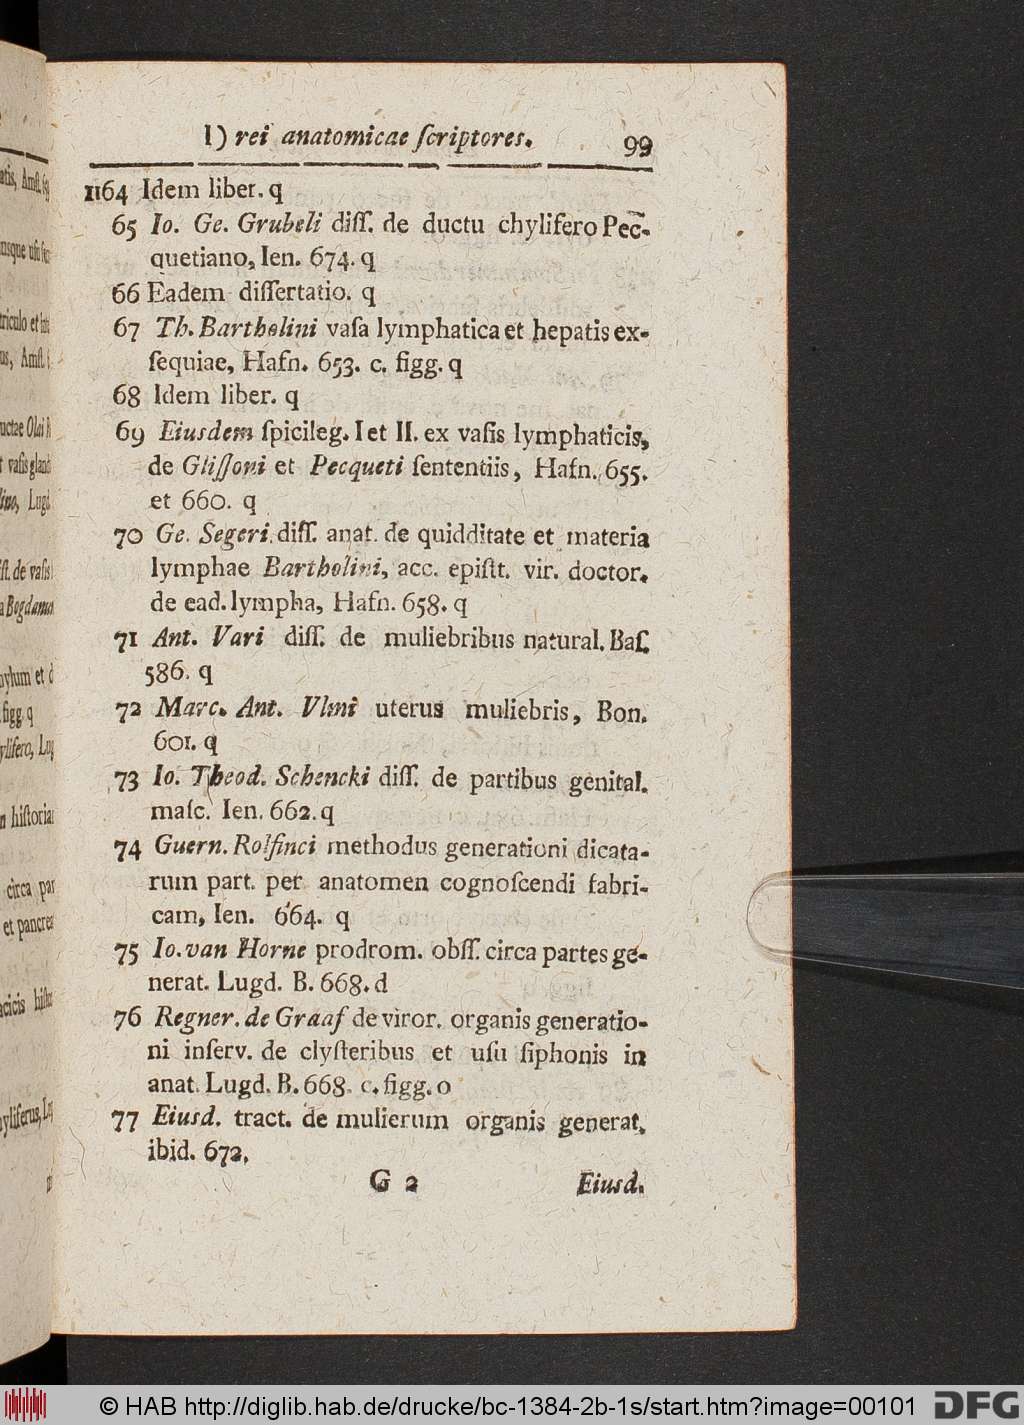 I) rei anatomicae ſcriptores. 99
1164 Idem liber. q
65 Io. Ge. Grubeli diſſ. de ductu chylifero Pec-
quetiano, Ien. 674. q
66 Eadem diſſertatio. q
67 Th. Bartholini vaſa lymphatica et hepatis ex-
ſequiae, Hafn. 653. c. figg. q
68 Idem liber. q
69 Eiusdem ſpicileg. I et II. ex vaſis lymphaticis,
de Gliſſoni et Pecqueti ſententiis, Hafn. 655.
et 660. q
70 Ge. Segeri diſſ. anat. de quidditate et materia
lymphae Bartholini, acc. epiſt. vir. doctor.
de ead. lympha, Hafn. 658. q
71 Ant. Vari diſſ. de muliebribus natural. Baſ.
586. q
72 Marc. Ant. Vlmi uterus muliebris, Bon.
601. q
73 Io. Theod. Schencki diſſ. de partibus genital.
maſc. Ien. 662. q
74 Guern. Rolfinci methodus generationi dicata-
rum part. per anatomen cognoſcendi fabri-
cam, Ien. 664. q
75 Io. van Horne prodrom. obſſ. circa partes ge-
nerat. Lugd. B. 668. d
76 Regner. de Graaf de viror. organis generatio-
ni inſerv. de clyſteribus et uſu ſiphonis in
anat. Lugd. B. 668. c. figg. o
77 Eiusd. tract. de mulierum organis generat.
ibid. 672.
G 2 Eiusd.
© HAB http://diglib.hab.de/drucke/bc-1384-2b-1s/start.htm?image=00101 DFG